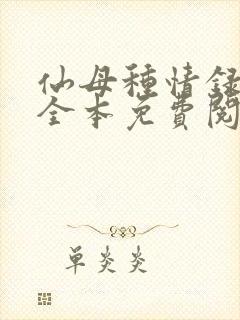 仙母種情録
全本免費閱
单炎炎